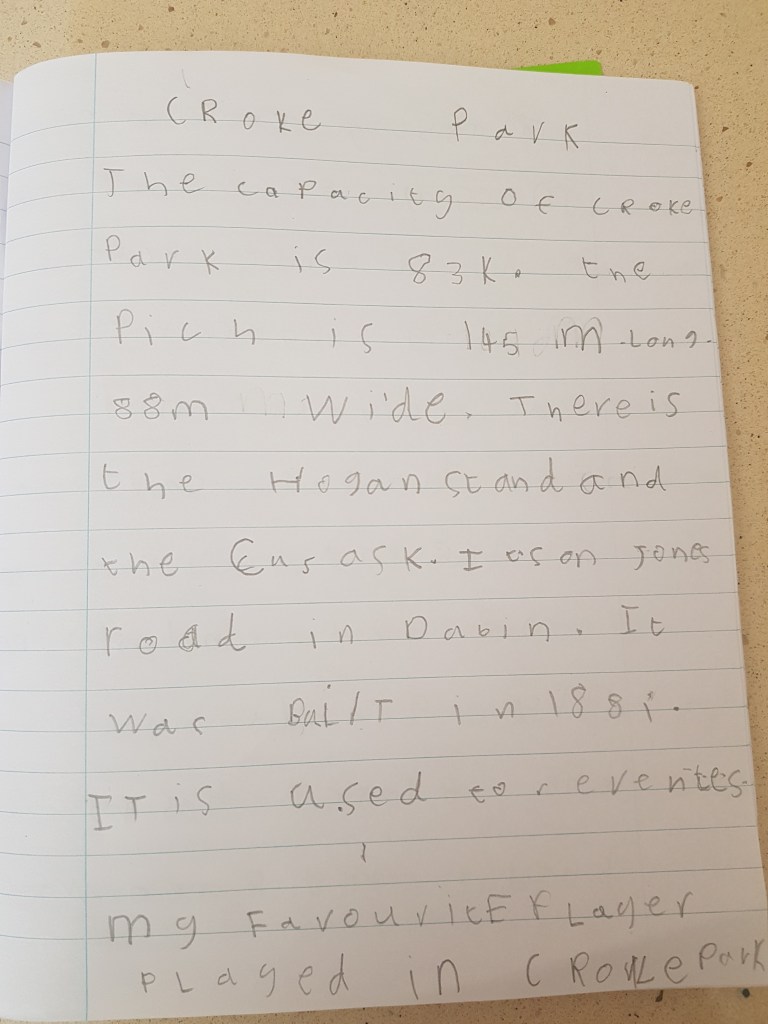 CRoke Park
The capacity OF CRoke
Park is 83K. the
Pich is 145 m Long.
88m Wide. There is
the Hogan stand and
the Cusask. It is on Jones
road in Dabin. It
was BuilT in 1881.
IT is used for eventes.
my FavouritE PLayer
PLayed in CRoke Park